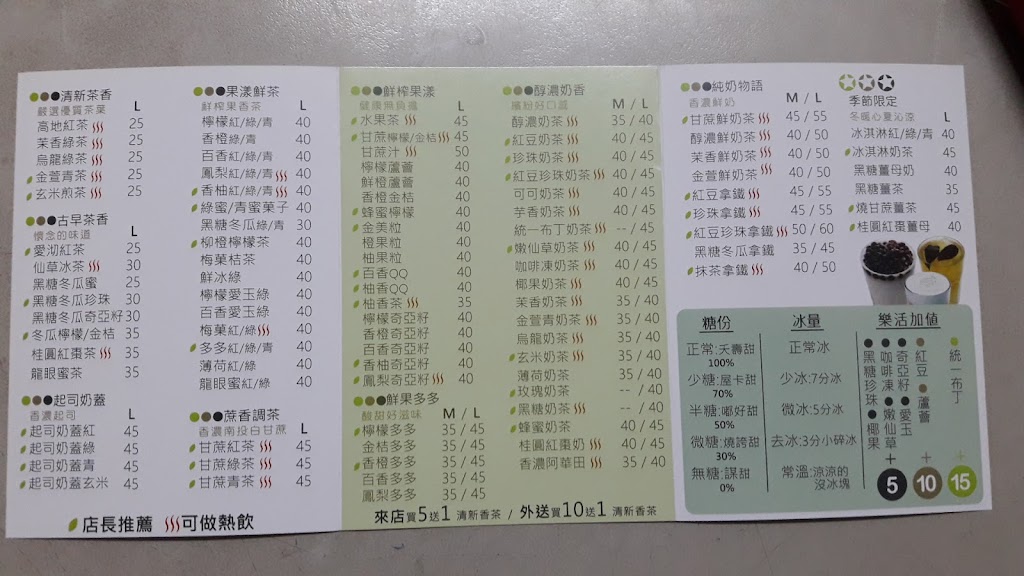 清新茶香
嚴選優質茶葉 L
高地紅茶 25
茉香綠茶 25
烏龍綠茶 25
金萱青茶 25
玄米煎茶 25
古早茶香
懷念的味道 L
愛沏紅茶 25
仙草冰茶 30
黑糖冬瓜蜜 25
黑糖冬瓜珍珠 30
黑糖冬瓜奇亞籽 30
冬瓜檸檬/金桔 35
桂圓紅棗茶 35
龍眼蜜茶 35
起司奶蓋
香濃起司 L
起司奶蓋紅 45
起司奶蓋綠 45
起司奶蓋青 45
起司奶蓋玄米 45
果漾鮮茶
鮮榨果香茶 L
檸檬紅/綠/青 40
香橙綠/青 40
百香紅/綠/青 40
鳳梨紅/綠/青 40
香柚紅/綠/青 40
綠蜜/青蜜菓子 40
黑糖冬瓜綠/青 30
柳橙檸檬茶 40
梅菓桔茶 40
鮮冰綠 40
檸檬愛玉綠 40
百香愛玉綠 40
梅菓紅/綠 40
多多紅/綠/青 40
薄荷紅/綠 40
龍眼蜜紅/綠 40
蔗香調茶
香濃南投白甘蔗 L
甘蔗紅茶 45
甘蔗綠茶 45
甘蔗青茶 45
店長推薦 可做熱飲
鮮榨果漾
健康無負擔 L
水果茶 45
甘蔗檸檬/金桔 45
甘蔗汁 50
檸檬蘆薈 40
鮮橙蘆薈 40
香橙金桔 40
蜂蜜檸檬 40
金美粒 40
橙果粒 40
柚果粒 40
百香QQ 40
柚香QQ 40
柚香茶 35
檸檬奇亞籽 40
香橙奇亞籽 40
百香奇亞籽 40
香柚奇亞籽 40
鳳梨奇亞籽 40
鮮果多多
酸甜好滋味 M / L
檸檬多多 35 / 45
金桔多多 35 / 45
香橙多多 35 / 45
百香多多 35 / 45
鳳梨多多 35 / 45
醇濃奶香
繽紛好口感 M / L
醇濃奶茶 35 / 40
紅豆奶茶 40 / 45
珍珠奶茶 40 / 45
紅豆珍珠奶茶 40 / 45
可可奶茶 40 / 45
芋香奶茶 40 / 45
統一布丁奶茶 -- / 45
嫩仙草奶茶 40 / 45
咖啡凍奶茶 40 / 45
椰果奶茶 35 / 45
茉香奶茶 35 / 40
金萱青奶茶 35 / 40
烏龍奶茶 35 / 40
玄米奶茶 35 / 40
薄荷奶茶 35 / 40
玫瑰奶茶 -- / 40
黑糖奶茶 -- / 40
蜂蜜奶茶 40 / 45
桂圓紅棗奶 40 / 45
香濃阿華田 35 / 40
來店買5送1 清新香茶 / 外送買10送1 清新香茶
純奶物語
香濃鮮奶 M / L
甘蔗鮮奶茶 45 / 55
醇濃鮮奶茶 40 / 50
茉香鮮奶茶 40 / 50
金萱鮮奶茶 40 / 50
紅豆拿鐵 45 / 55
珍珠拿鐵 45 / 55
紅豆珍珠拿鐵 50 / 60
黑糖冬瓜拿鐵 35 / 45
抹茶拿鐵 40 / 50
季節限定
冬暖心夏沁涼 L
冰淇淋紅/綠/青 40
冰淇淋奶茶 45
黑糖薑母奶 40
黑糖薑茶 35
燒甘蔗薑茶 45
桂圓紅棗薑母 40
糖份
正常:夭壽甜
100%
少糖:屋卡甜
70%
半糖:嘟好甜
50%
微糖:燒誇甜
30%
無糖:謀甜
0%
冰量
正常冰
少冰:7分冰
微冰:5分冰
去冰:3分小碎冰
常溫:涼涼的
沒冰塊
樂活加値
黑糖珍珠 椰果
咖啡凍 嫩仙草
奇亞籽 愛玉
+
5
紅豆 蘆薈
+
10
統一布丁
+
15